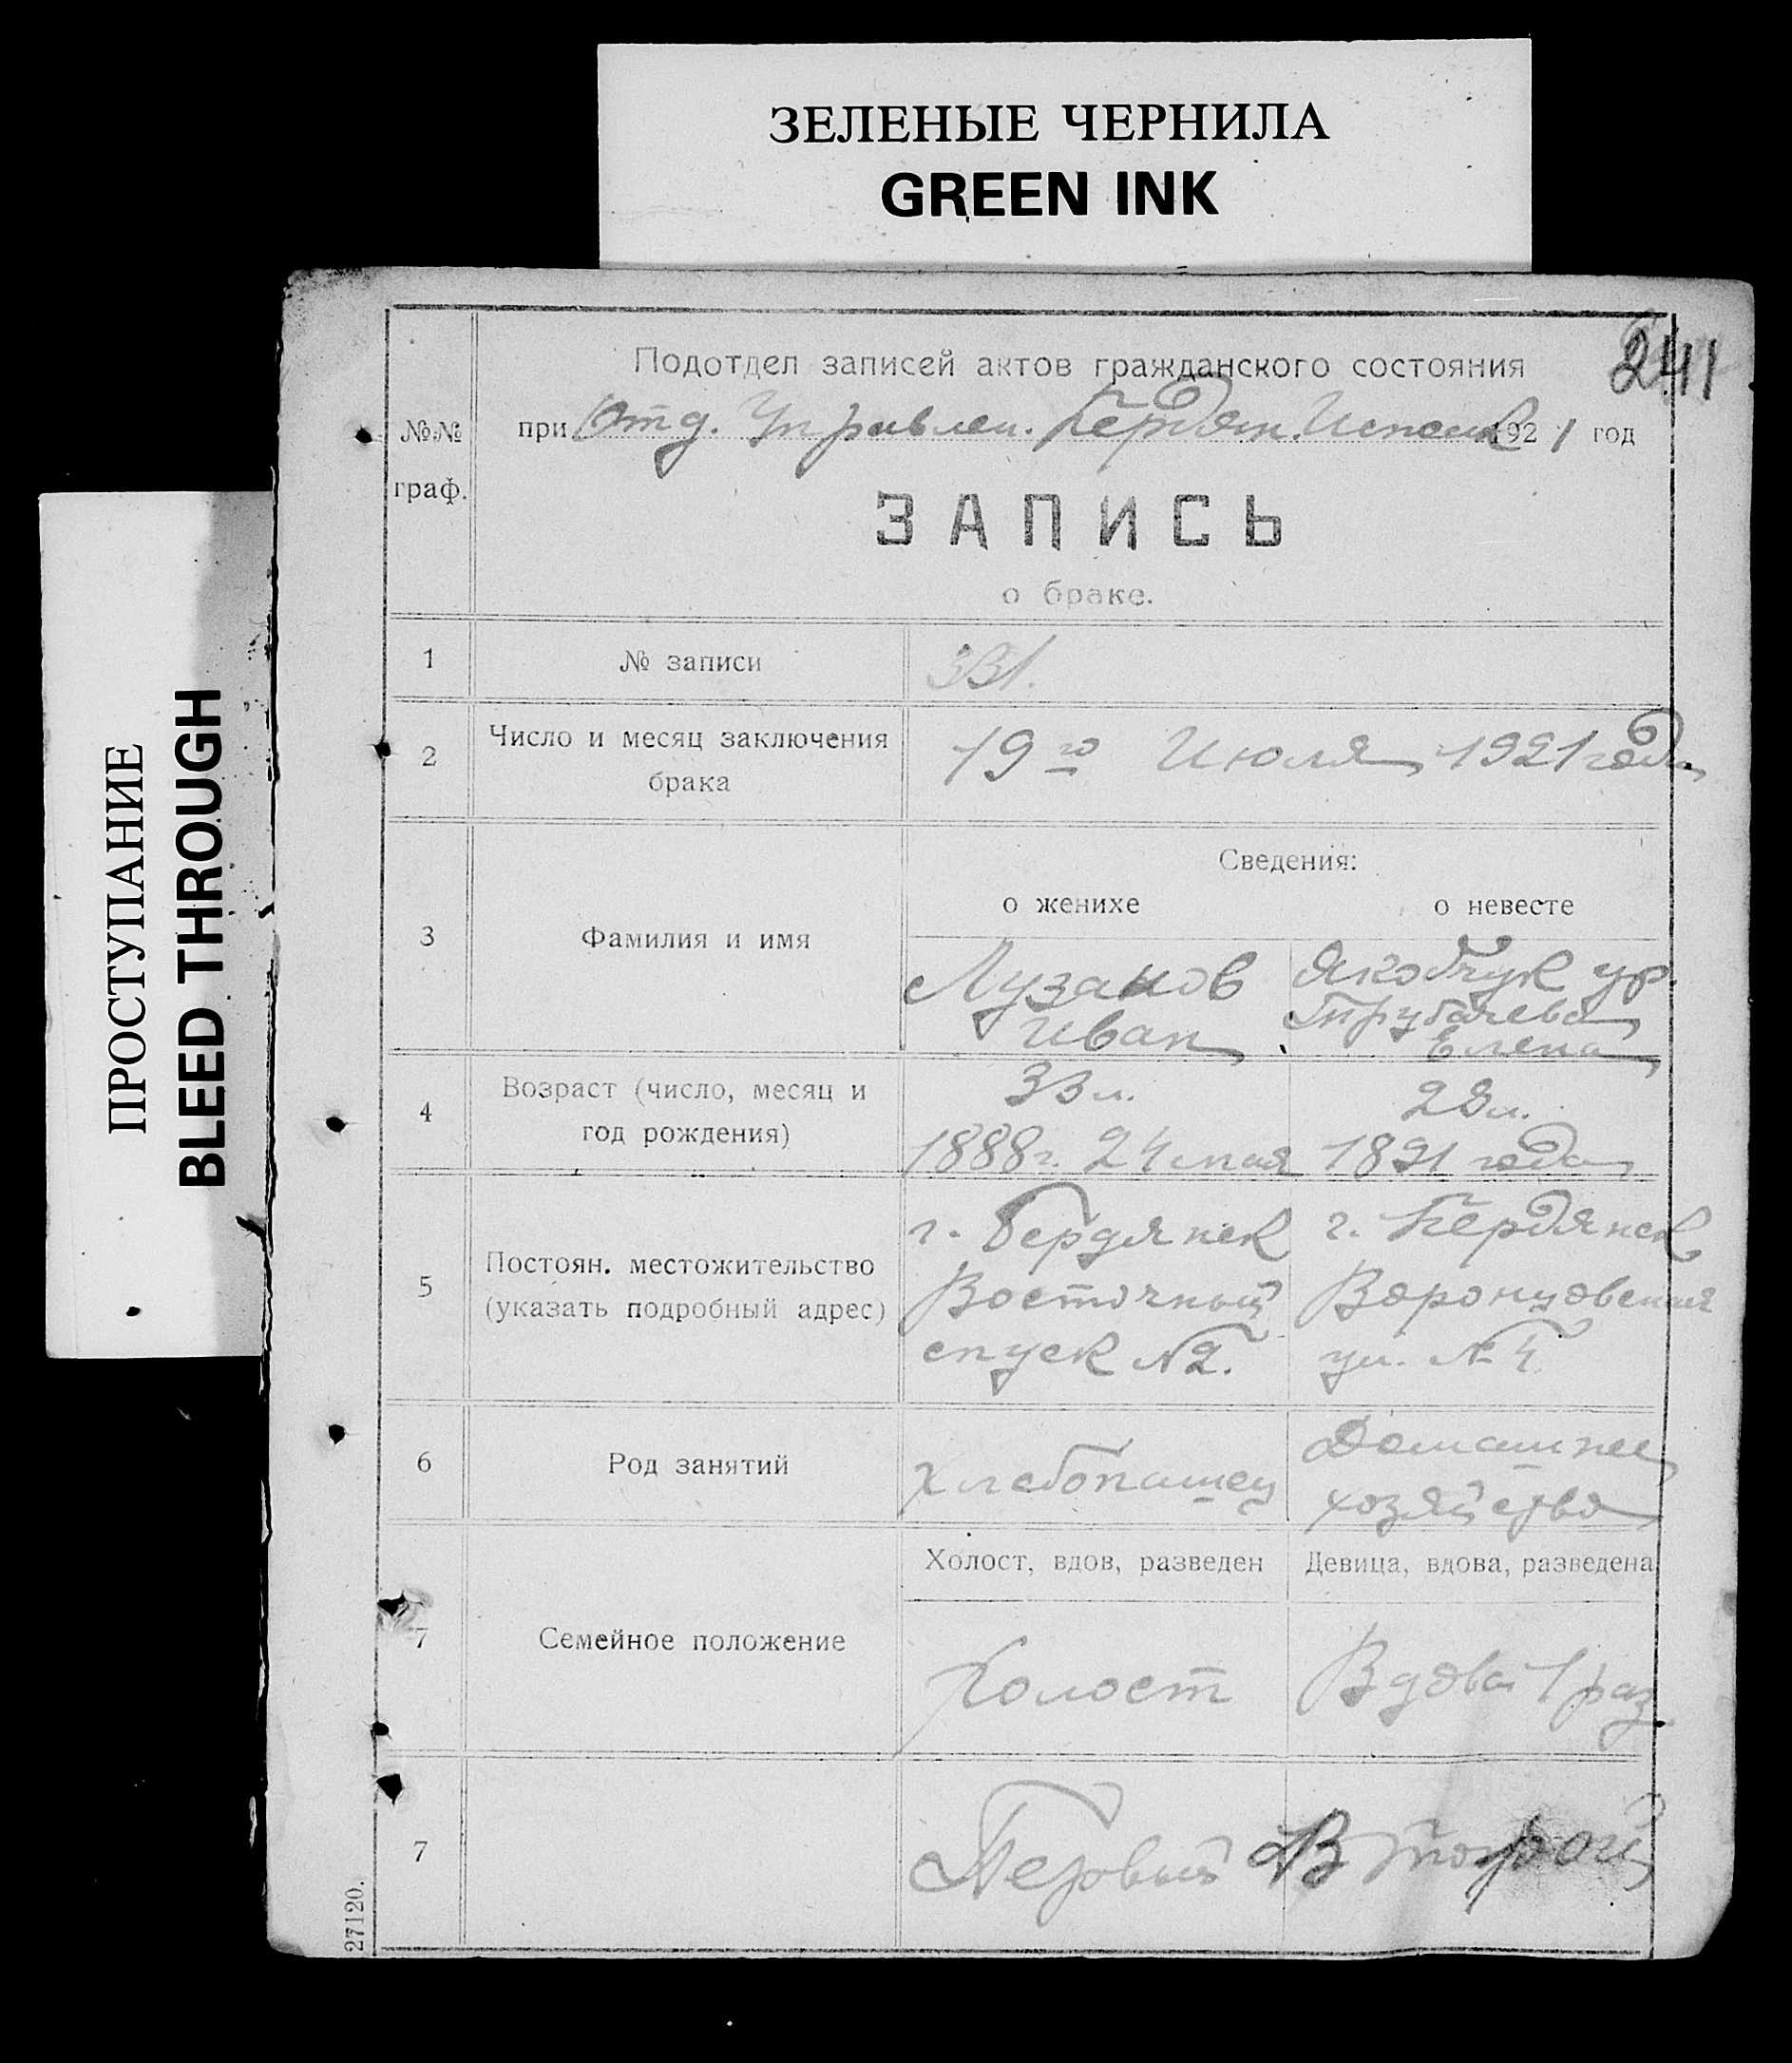 ЗЕЛЕНЫЕ ЧЕРНИЛА
GREEN INK
ПРОСТУПАНИЕ
BLEED THROUGH
241
Подотдел записей актов гражданского состояния
№№ граф.
при Отд. Управлен. Бердян. Исполк 1921 год
ЗАПИСЬ
о браке.
1 № записи 331.
2 Число и месяц заключения брака
19го Июля 1921 года
Сведения:
о женихе о невесте
3 Фамилия и имя
Лузанов Иван
Якобчук ур.
Трубачева
Елена
4 Возраст (число, месяц и год рождения)
33 л.
1888 г. 24 мая
28 л.
1891 года
5 Постоян. местожительство
(указать подробный адрес)
г. Бердянск
Восточный
спуск №2.
г. Бердянск
Воронцовская
ул. №4
6 Род занятий
Хлебопашец
Домашнее
хозяйство
Холост, вдов, разведен Девица, вдова, разведена
7 Семейное положение
Холост Вдова 1 раз
7 Первый Второй
27120.